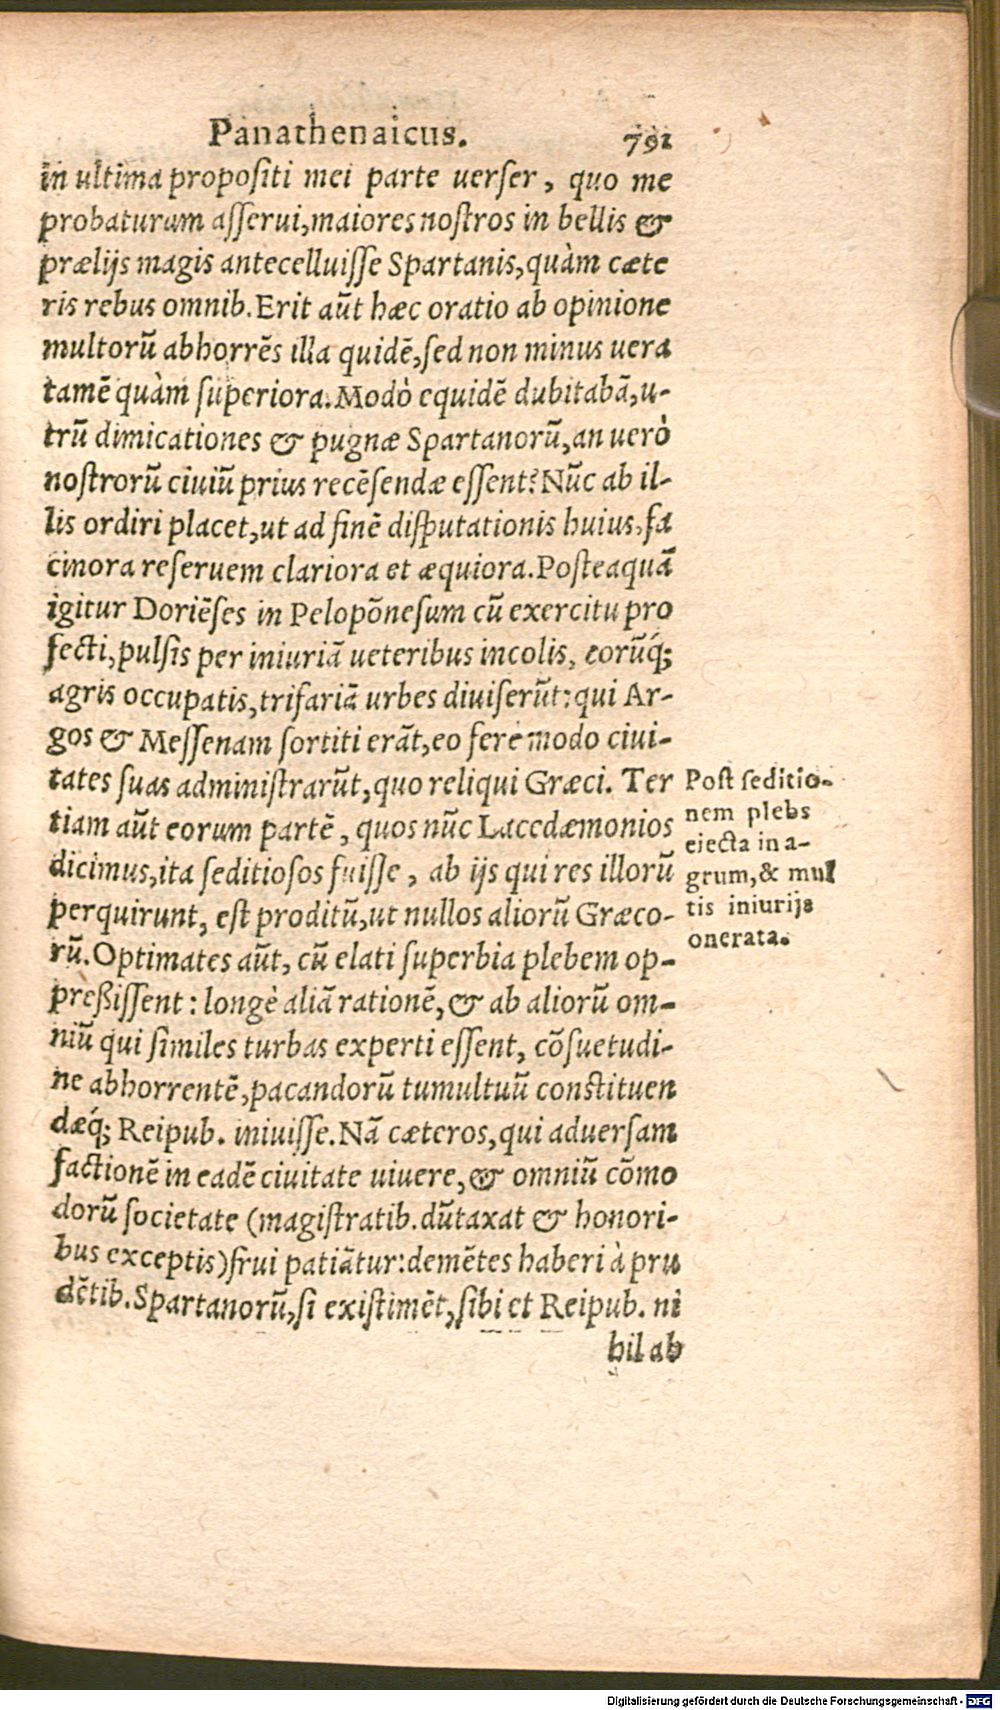 Panathenaicus. 791
in ultima propositi mei parte uerser, quo me
probaturum asserui, maiores nostros in bellis &
prælijs magis antecelluisse Spartanis, quàm cæte
ris rebus omnib. Erit aũt hæc oratio ab opinione
multorũ abhorrẽs illa quidẽ, sed non minus uera
tamẽ quàm superiora. Modò equidẽ dubitabã, u-
trũ dimicationes & pugnæ Spartanorũ, an uerò
nostrorũ ciuiũ prius recẽsendæ essent? Nũc ab il-
lis ordiri placet, ut ad finẽ disputationis huius, fa
cinora reseruem clariora et æquiora. Posteaquã
igitur Doriẽses in Pelopõnesum cũ exercitu pro
fecti, pulsis per iniuriã ueteribus incolis, eorũq́;
agris occupatis, trifariã urbes diuiserũt: qui Ar-
gos & Messenam sortiti erãt, eo fere modo ciui-
tates suas administrarũt, quo reliqui Græci. Ter
tiam aũt eorum partẽ, quos nũc Lacedæmonios
dicimus, ita seditiosos fuisse, ab ijs qui res illorũ
perquirunt, est proditũ, ut nullos aliorũ Græco-
rũ. Optimates aũt, cũ elati superbia plebem op-
preßissent: longè aliã rationẽ, & ab aliorũ om-
niũ qui similes turbas experti essent, cõsuetudi-
ne abhorrentẽ, pacandorũ tumultuũ constituen
dæq́; Reipub. iniuisse. Nã cæteros, qui aduersam
factionẽ in eadẽ ciuitate uiuere, & omniũ cõmo
dorũ societate (magistratib. dũtaxat & honori-
bus exceptis) frui patiãtur: demẽtes haberi à pru
dẽtib. Spartanorũ, si existimẽt, sibi et Reipub. ni
hil ab
Post seditio-
nem plebs
eiecta in a-
grum, & mul
tis iniurijs
onerata.
Digitalisierung gefördert durch die Deutsche Forschungsgemeinschaft - DFG